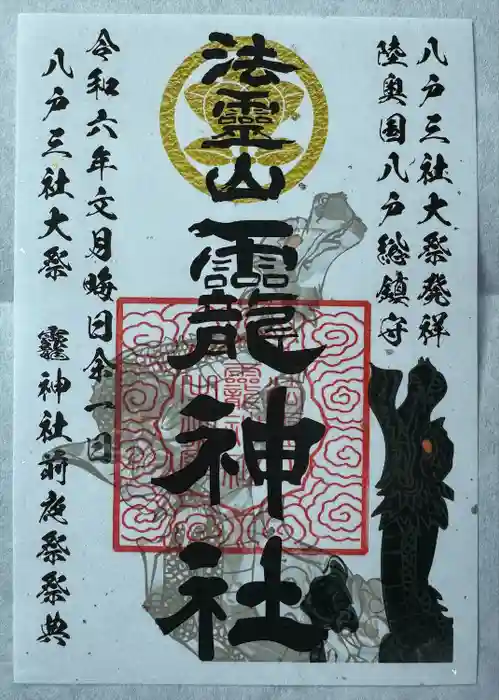 八戸三社大祭発祥
陸奥国八戸総鎮守
法霊山龗神社
令和六年文月晦日余一日
八戸三社大祭 龗神社前夜祭祭典